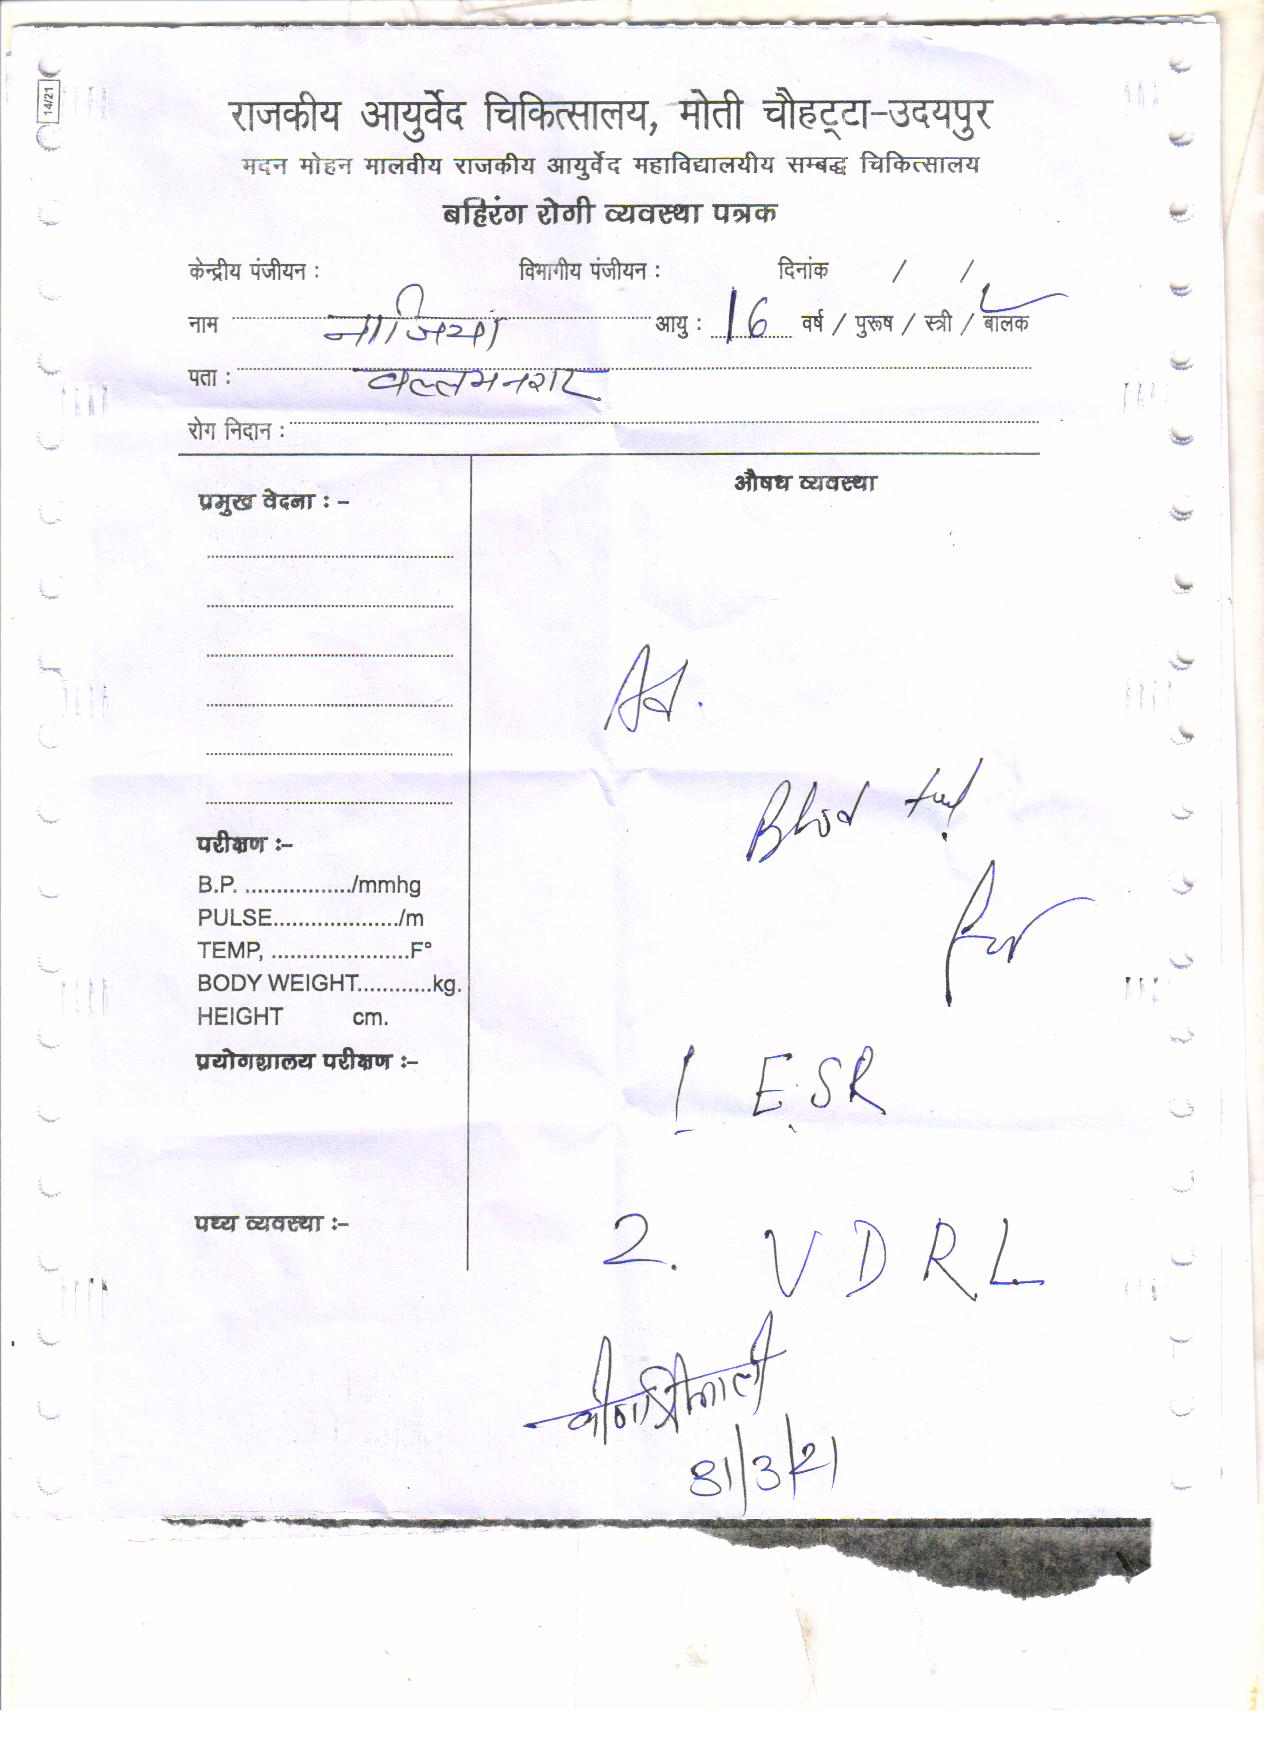 14/21
राजकीय आयुर्वेद चिकित्सालय, मोती चौहट्टा-उदयपुर
मदन मोहन मालवीय राजकीय आयुर्वेद महाविद्यालयीय सम्बद्ध चिकित्सालय
बहिरंग रोगी व्यवस्था पत्रक
केन्द्रीय पंजीयन : विभागीय पंजीयन : दिनांक / /
नाम नाजिया आयु : 16 वर्ष / पुरूष / स्त्री / बालक
पता : वल्लभनगर
रोग निदान :
प्रमुख वेदना : -
औषध व्यवस्था
Ad.
Blood
for
परीक्षण :-
B.P. ................./mmhg
PULSE..................../m
TEMP, ......................F°
BODY WEIGHT............kg.
HEIGHT cm.
प्रयोगशालय परीक्षण :-
1 ESR
पथ्य व्यवस्था :-
2. VDRL
31/3/21